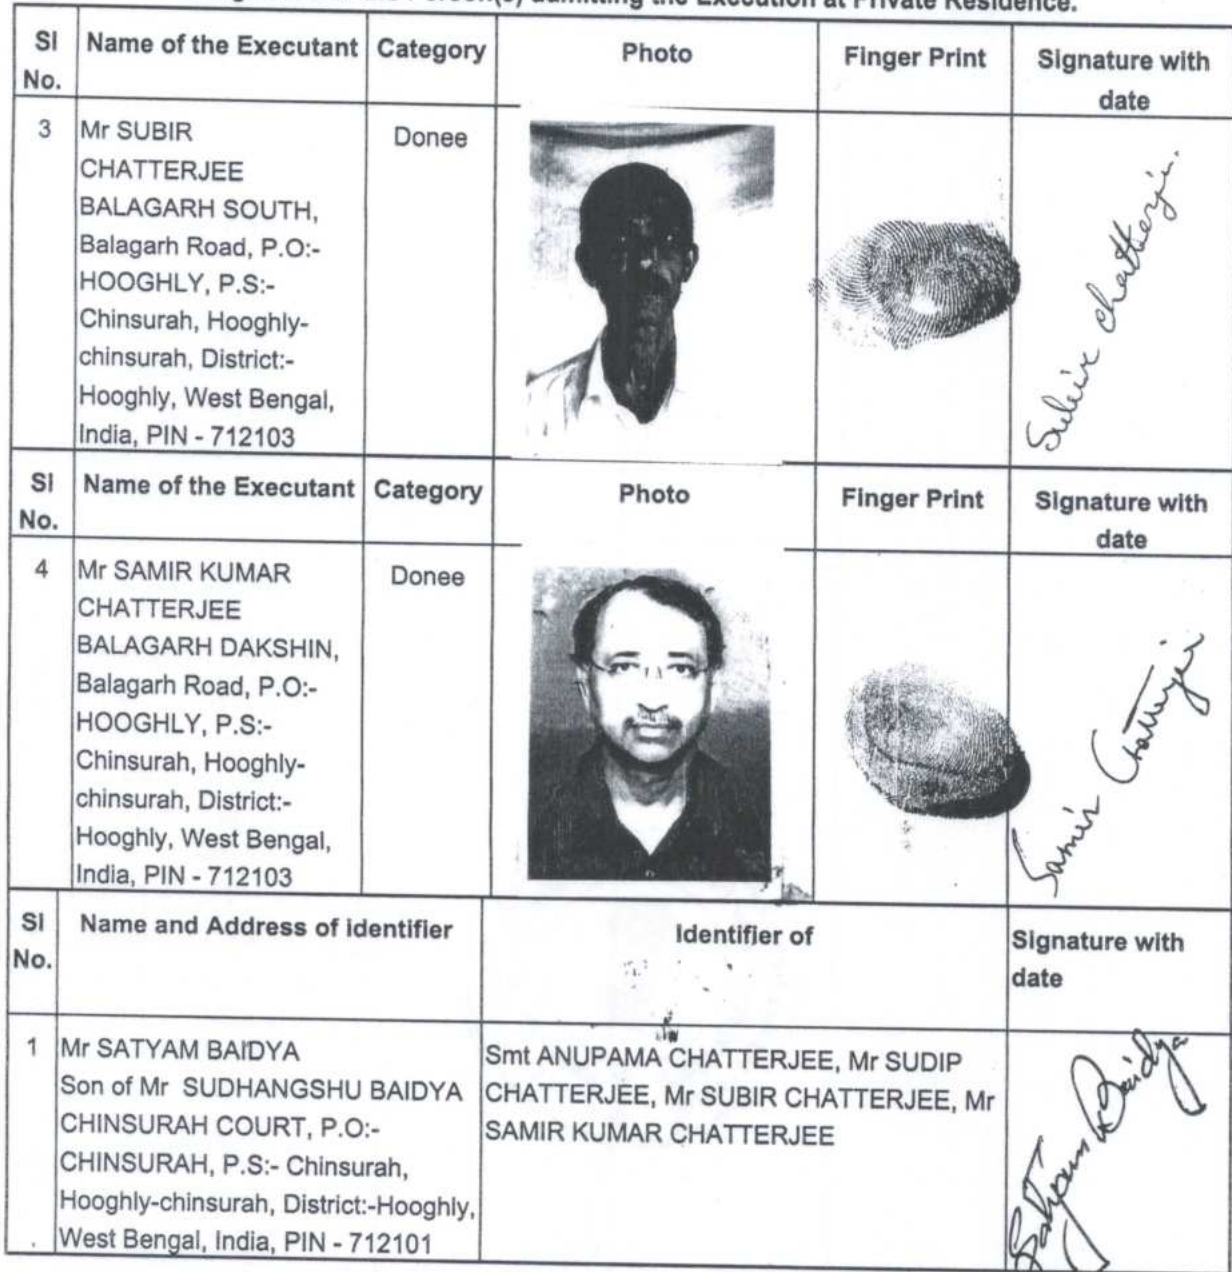 the Person(s) admitting the Execution at Private Residence.
Sl No. Name of the Executant Category Photo Finger Print Signature with date
3 Mr SUBIR Donee
CHATTERJEE
BALAGARH SOUTH,
Balagarh Road, P.O:-
HOOGHLY, P.S:-
Chinsurah, Hooghly-
chinsurah, District:-
Hooghly, West Bengal,
India, PIN - 712103
Subir Chatterjee.
Sl No. Name of the Executant Category Photo Finger Print Signature with date
4 Mr SAMIR KUMAR Donee
CHATTERJEE
BALAGARH DAKSHIN,
Balagarh Road, P.O:-
HOOGHLY, P.S:-
Chinsurah, Hooghly-
chinsurah, District:-
Hooghly, West Bengal,
India, PIN - 712103
Samir Chatterjee
Sl No. Name and Address of identifier Identifier of Signature with date
1 Mr SATYAM BAIDYA
Son of Mr SUDHANGSHU BAIDYA
CHINSURAH COURT, P.O:-
CHINSURAH, P.S:- Chinsurah,
Hooghly-chinsurah, District:-Hooghly,
West Bengal, India, PIN - 712101
Smt ANUPAMA CHATTERJEE, Mr SUDIP
CHATTERJEE, Mr SUBIR CHATTERJEE, Mr
SAMIR KUMAR CHATTERJEE
Satyam Baidya